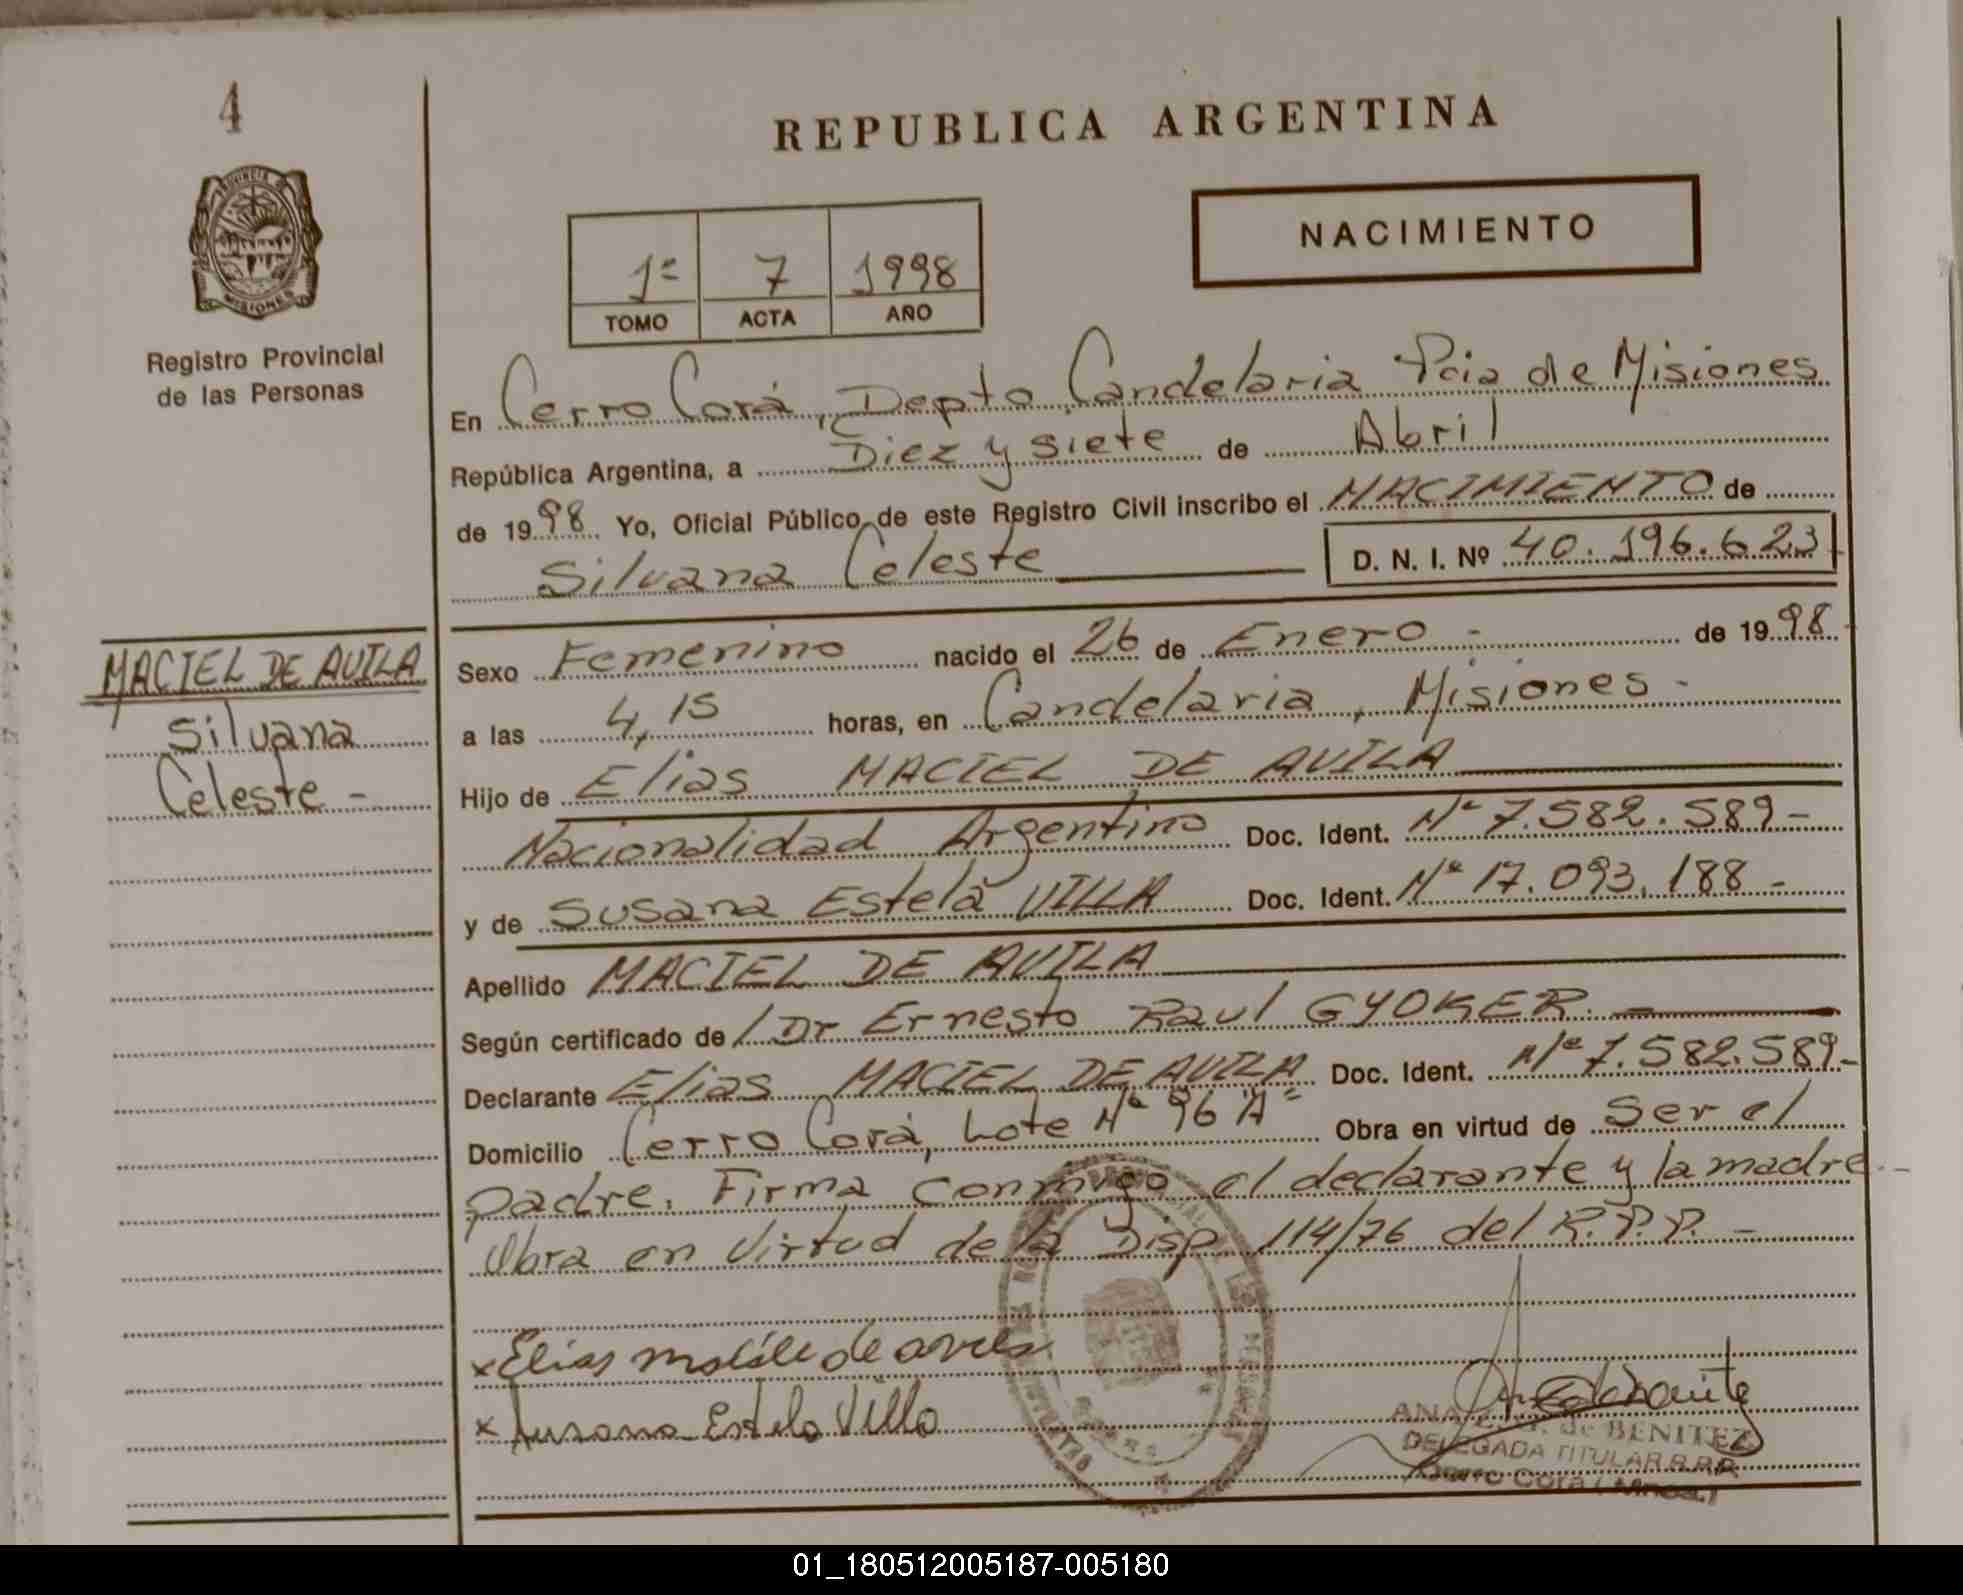 4
REPUBLICA ARGENTINA
PROVINCIA DE
MISIONES
Registro Provincial
de las Personas
1º 7 1998
TOMO ACTA AÑO
NACIMIENTO
En Cerro Corá, Depto Candelaria Pcia de Misiones
República Argentina, a Diez y siete de Abril
de 1998 Yo, Oficial Público de este Registro Civil inscribo el NACIMIENTO de
Silvana Celeste D. N. I. Nº 40.196.623
MACIEL DE AVILA
Silvana
Celeste -
Sexo Femenino nacido el 26 de Enero - de 1998
a las 4,15 horas, en Candelaria, Misiones -
Hijo de Elias MACIEL DE AVILA
Nacionalidad Argentino Doc. Ident. Nº 7.582.589-
y de Susana Estela VILLA Doc. Ident. Nº 17.093.188 -
Apellido MACIEL DE AVILA
Según certificado de Dr Ernesto Raul GYOKER. -
Declarante Elias MACIEL DE AVILA Doc. Ident. Nº 7.582.589-
Domicilio Cerro Corá, Lote Nº 96 "A" Obra en virtud de Ser el
padre. Firma conmigo el declarante y la madre. -
Obra en Virtud de la Disp 114/76 del R.P.P. -
x Elias de avila
x Susana Estela Villa
ANA de BENITEZ
DELEGADA TITULAR R.P.P.
Cerro Cora (Mnes.)
01_180512005187-005180